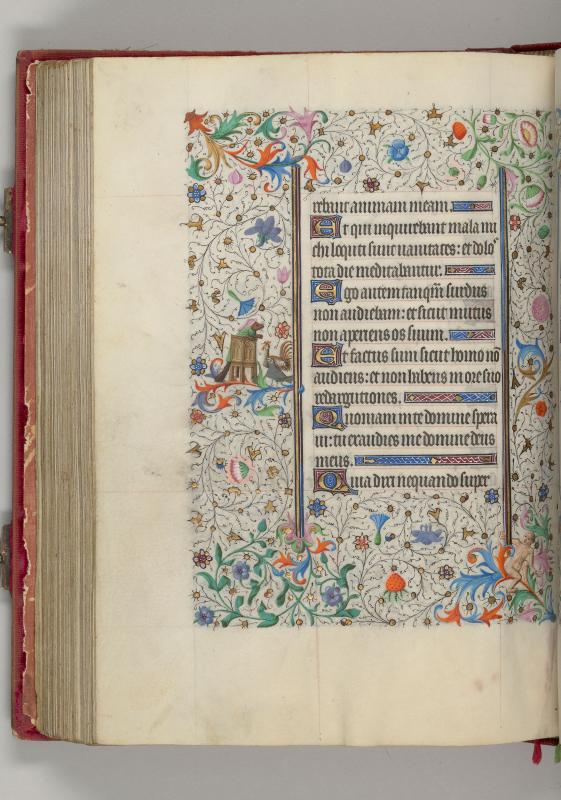 rebant animam meam.
Et qui inquirebant mala mi
chi locuti sunt uanitates: et dolos
tota die meditabantur.
Ego autem tanqm̄ surdus
non audiebam: et sicut mutus
non aperiens os suum.
Et factus sum sicut homo nō
audiens: et non habens in ore suo
redargutiones.
Quoniam in te domine spera
ui: tu exaudies me domine deus
meus.
Quia dixi nequando super